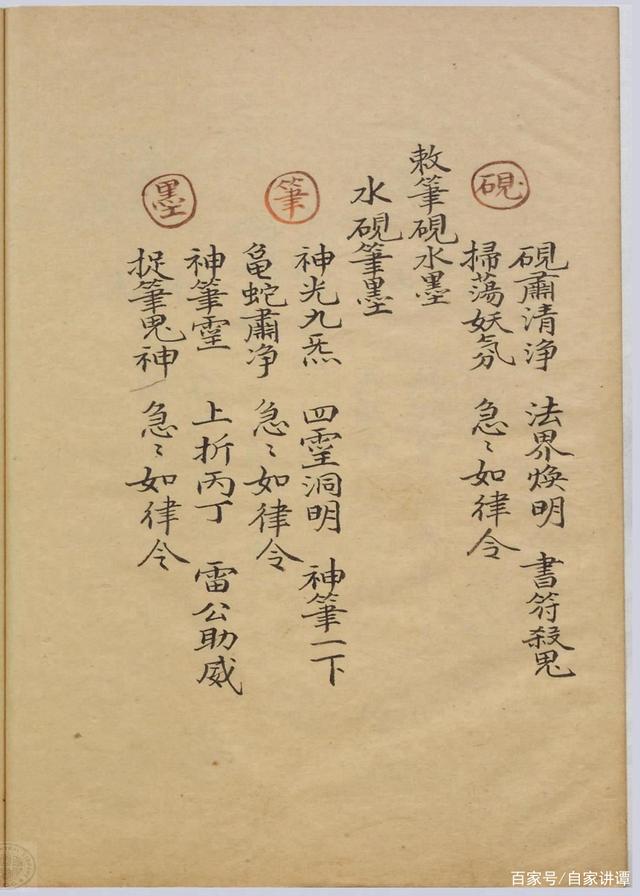 硯
硯肅清净 法界煥明 書符殺鬼
掃蕩妖氛 急〻如律令
敕筆硯水墨
水硯筆墨
筆
神光九炁 四霊洞明 神筆一下
亀蛇肅净 急〻如律令
墨
神筆霊 上折丙丁 雷公助威
捉筆鬼神 急〻如律令
百家号/自家讲谭